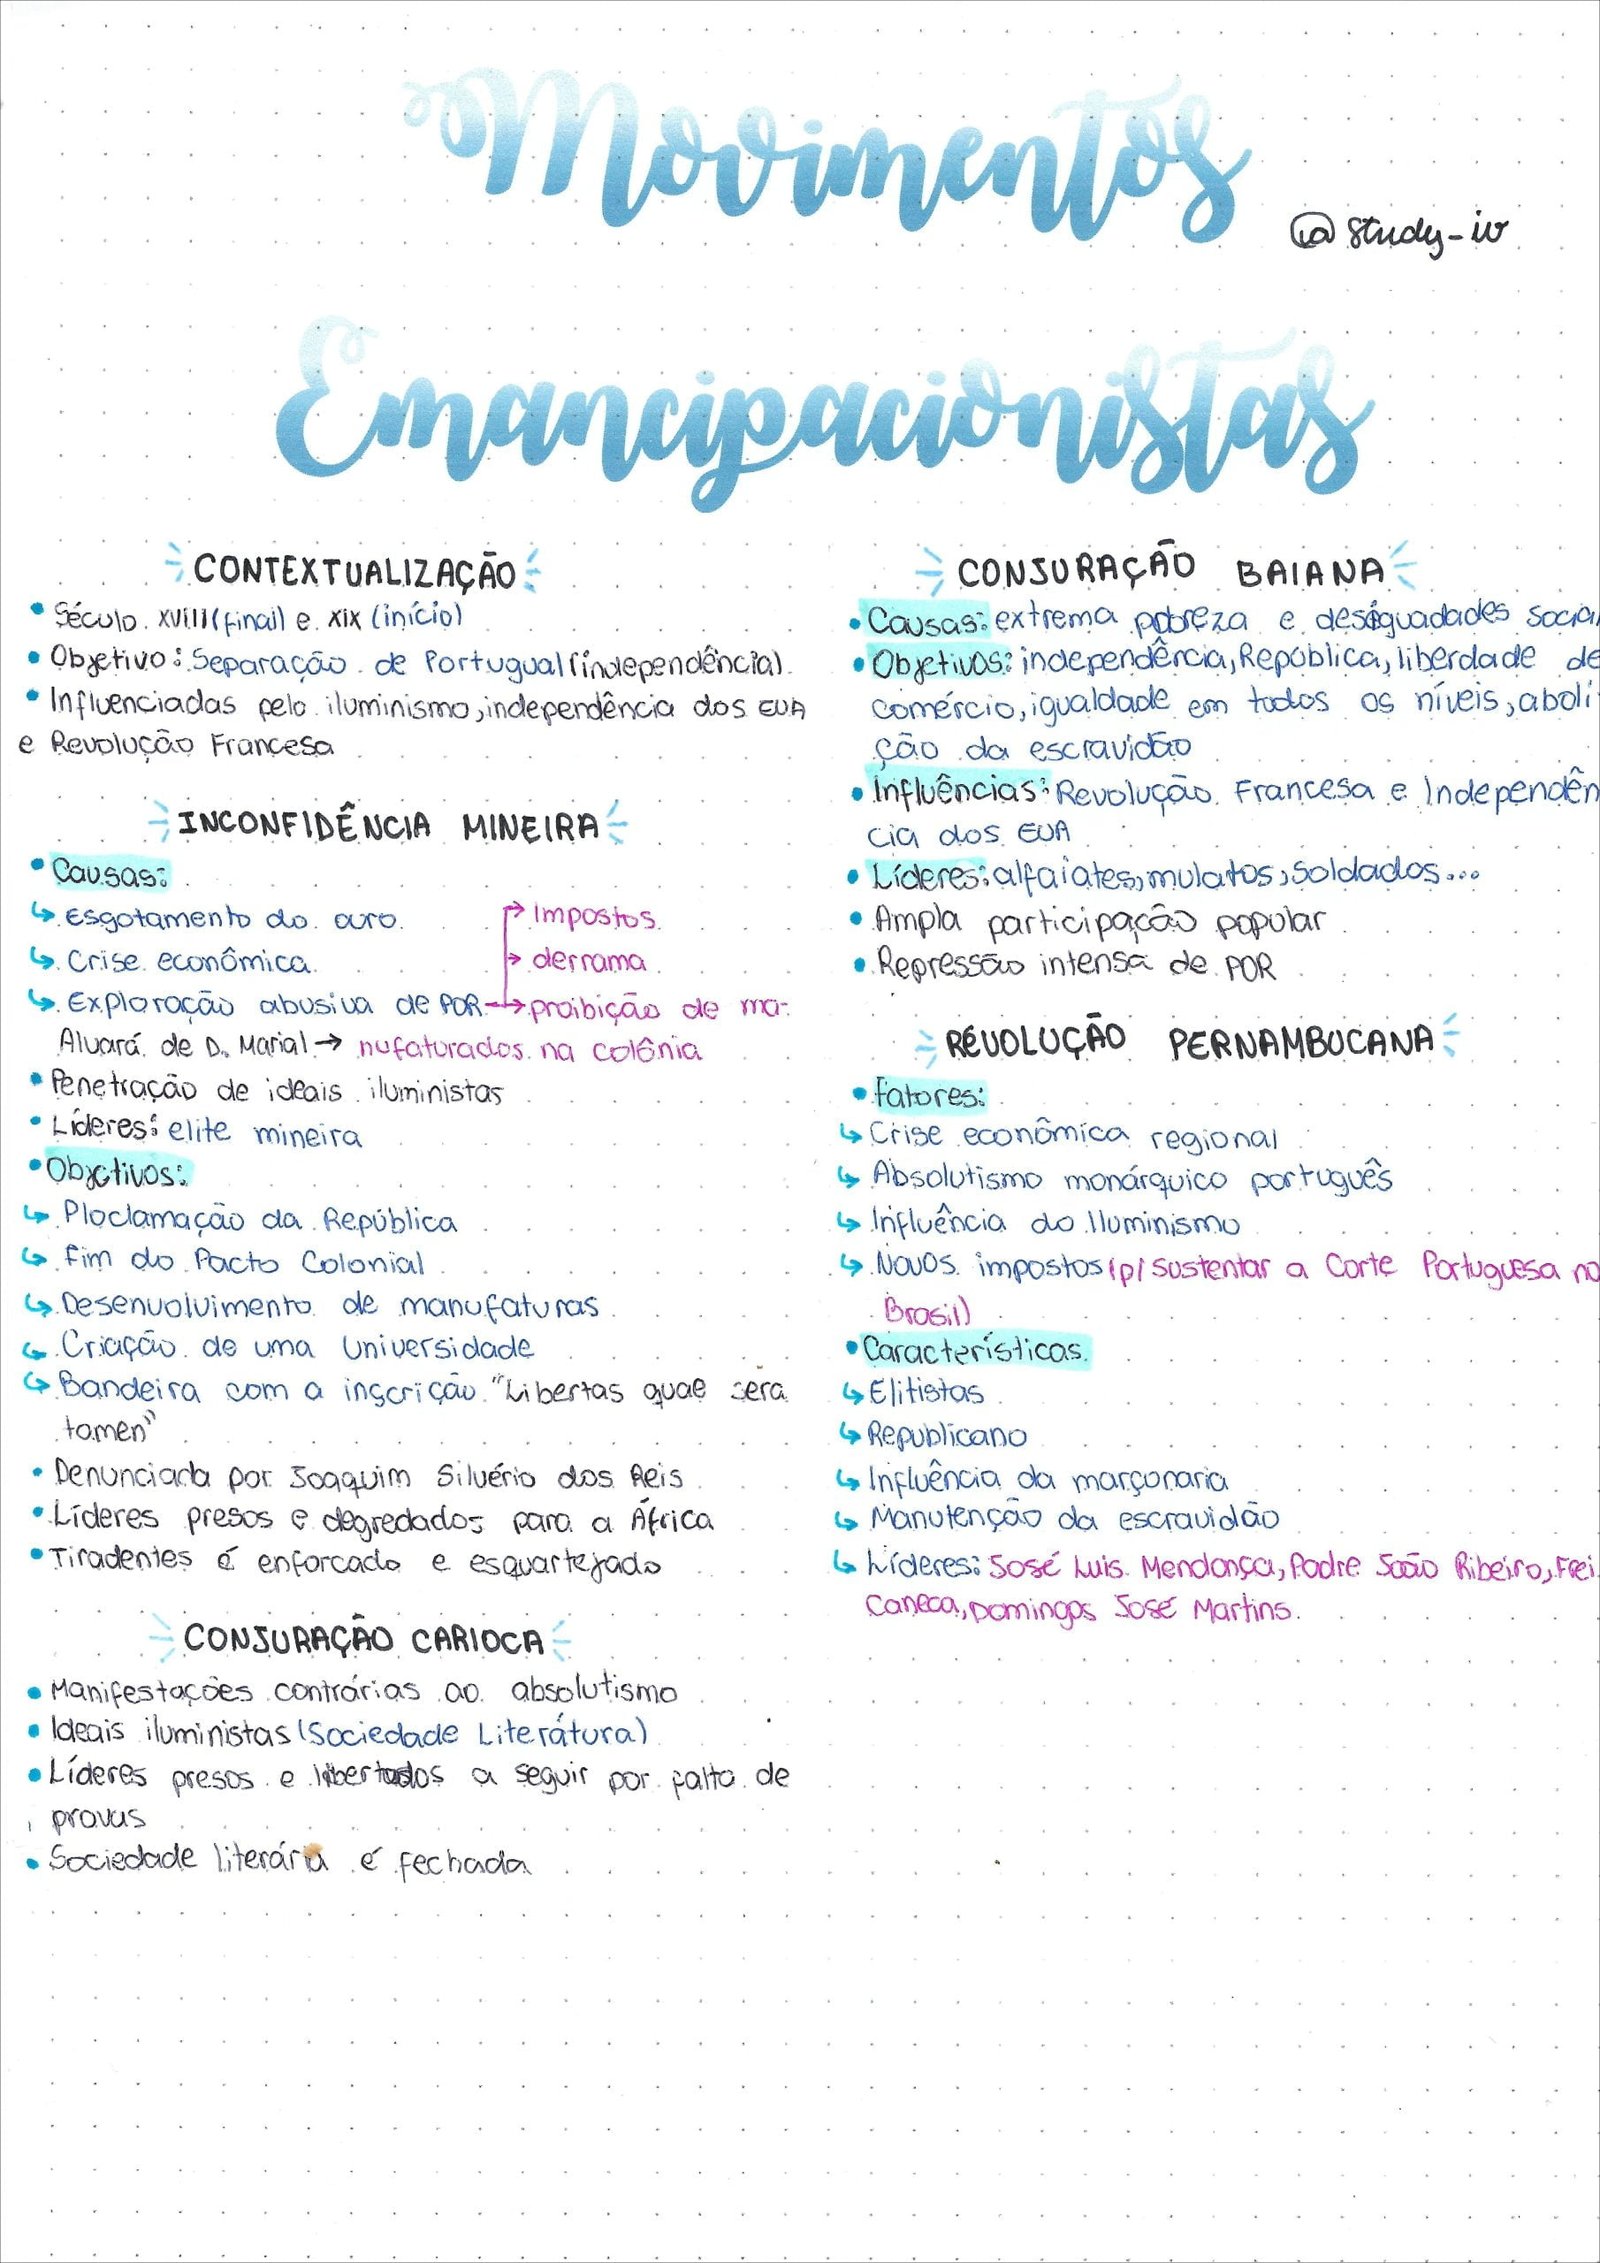 Movimentos
@study_iv
Emancipacionistas
CONTEXTUALIZAÇÃO
• Século XVIII (final) e XIX (início)
• Objetivo: Separação de Portugual (independência)
• Influenciadas pelo iluminismo, independência dos EUA
e Revolução Francesa
INCONFIDÊNCIA MINEIRA
• Causas:
↳ Esgotamento do ouro
→ Impostos
↳ Crise econômica
→ derrama
↳ Exploração abusiva de POR → proibição de ma-
Alvará de D. MariaI → nufaturados na colônia
• Penetração de ideais iluministas
• Líderes: elite mineira
• Objetivos:
↳ Ploclamação da República
↳ Fim do Pacto Colonial
↳ Desenvolvimento de manufaturas
↳ Criação de uma Universidade
↳ Bandeira com a inscrição "Libertas quae sera
tamen"
• Denunciada por Joaquim Silvério dos Reis
• Líderes presos e degredados para a África
• Tiradentes é enforcado e esquartejado
CONJURAÇÃO CARIOCA
• Manifestações contrárias ao absolutismo
• Ideais iluministas (Sociedade Literátura)
• Líderes presos e libertados a seguir por falta de
provas
• Sociedade literária é fechada
CONJURAÇÃO BAIANA
• Causas: extrema pobreza e desiguadades socia
• Objetivos: independência, República, liberdade de
comércio, igualdade em todos os níveis, aboli
ção da escravidão
• Influências: Revolução Francesa e Independên
cia dos EUA
• Líderes: alfaiates, mulatos, soldados...
• Ampla participação popular
• Repressão intensa de POR
REVOLUÇÃO PERNAMBUCANA
• Fatores:
↳ Crise econômica regional
↳ Absolutismo monárquico português
↳ Influência do Iluminismo
↳ Novos impostos (p/ sustentar a Corte Portuguesa no
Brasil)
• Características
↳ Elitistas
↳ Republicano
↳ Influência da marçonaria
↳ Manutenção da escravidão
↳ Líderes: José Luis Mendonça, Padre João Ribeiro, Frei
Caneca, Domingos José Martins.